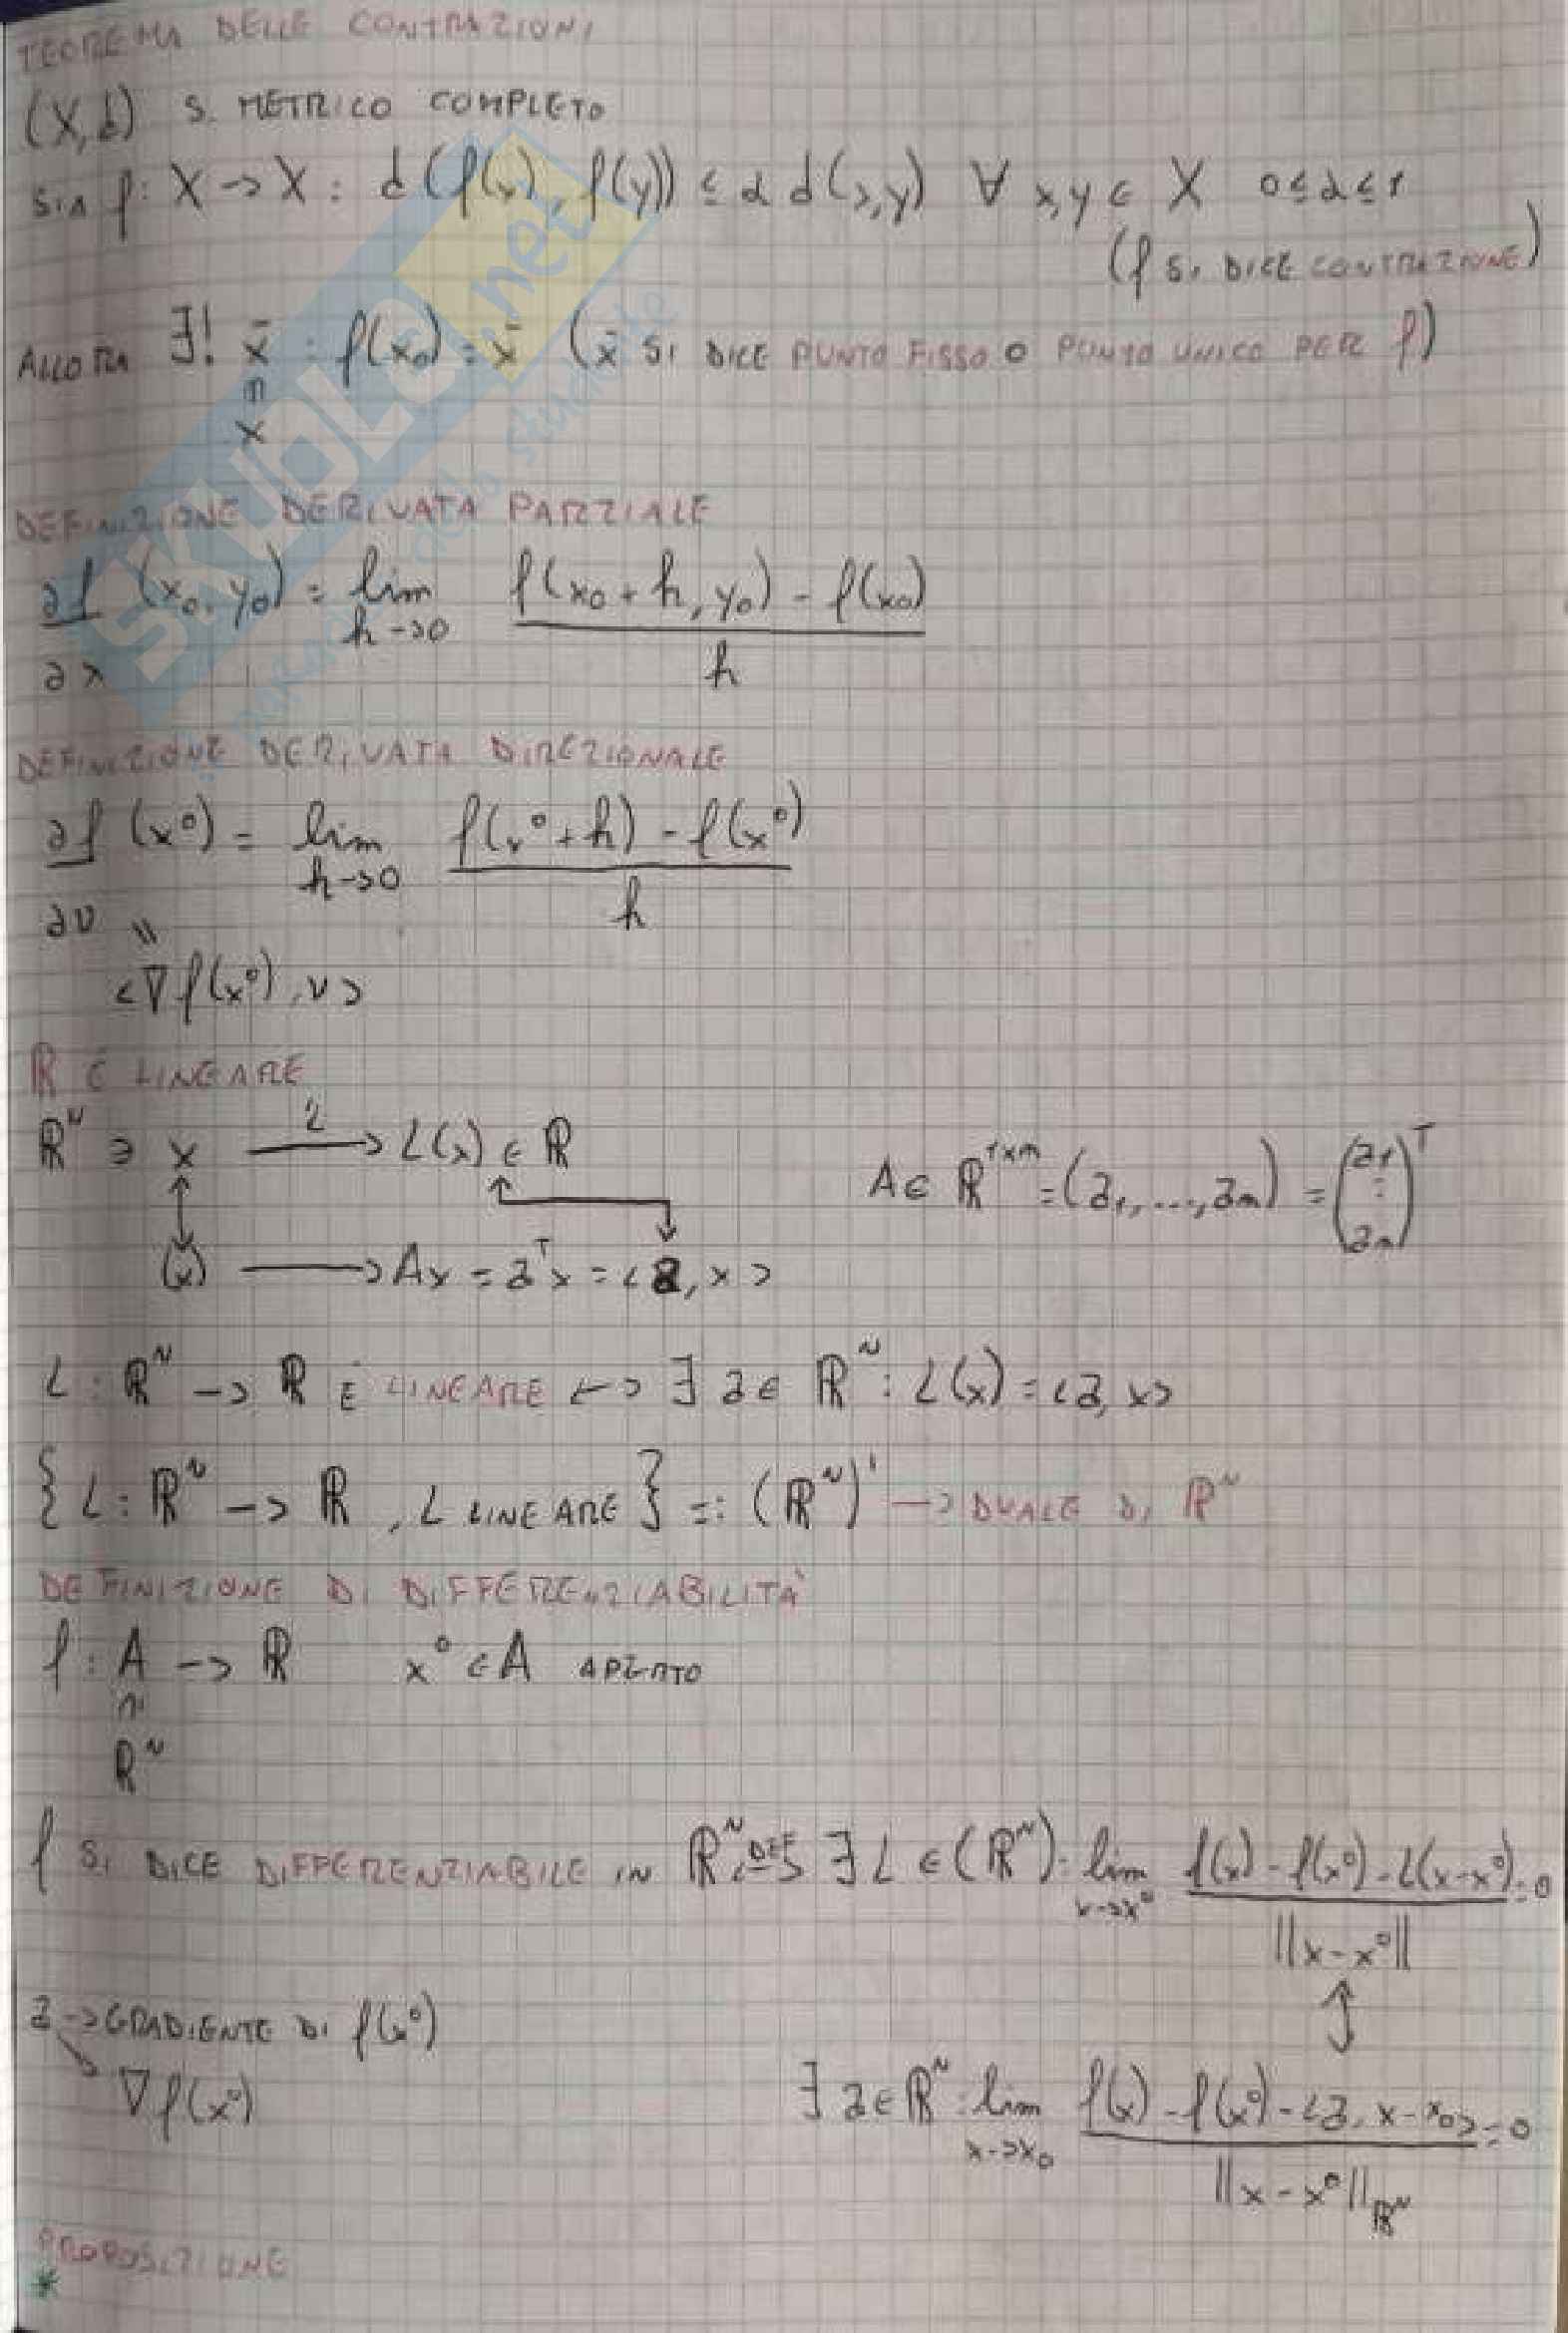 TEOREMA DELLE CONTRAZIONI
(X,d) S. METRICO COMPLETO
SIA f: X -> X : d(f(x), f(y)) ≤ α d(x,y) ∀ x,y ∈ X 0≤α≤1
(f SI DICE CONTRAZIONE)
ALLORA ∃! x̄ : f(x₀) = x̄ (x̄ SI DICE PUNTO FISSO O PUNTO UNICO PER f)
∈
X
DEFINIZIONE DERIVATA PARZIALE
∂f/∂x (x₀, y₀) = lim h->0 f(x₀+h, y₀) - f(x₀) / h
DEFINIZIONE DERIVATA DIREZIONALE
∂f/∂v (x⁰) = lim h->0 f(x⁰+h) - f(x⁰) / h
"
<∇f(x⁰), v>
R È LINEARE
Rᴺ ∋ x -L-> L(x) ∈ R
A ∈ R¹ˣⁿ = (a₁, ..., aₙ) = (a₁ : aₙ)ᵀ
(x) -> Ax = aᵀx = <a, x>
L : Rᴺ -> R È LINEARE <-> ∃ a ∈ Rᴺ : L(x) = <a, x>
{L : Rᴺ -> R, L LINEARE} =: (Rᴺ)' -> DUALE DI Rᴺ
DEFINIZIONE DI DIFFERENZIABILITÀ
f : A -> R x⁰ ∈ A APERTO
∩
Rᴺ
f SI DICE DIFFERENZIABILE IN Rᴺ <=DEF=> ∃ L ∈ (Rᴺ) : lim x->x⁰ f(x) - f(x⁰) - L(x-x⁰) / ||x-x⁰|| = 0
a -> GRADIENTE DI f(x⁰)
∇f(x⁰)
∃ a ∈ Rᴺ : lim x->x₀ f(x) - f(x⁰) - <a, x-x₀> / ||x-x⁰||Rᴺ = 0
PROPOSIZIONE
*
SKUOLA.net